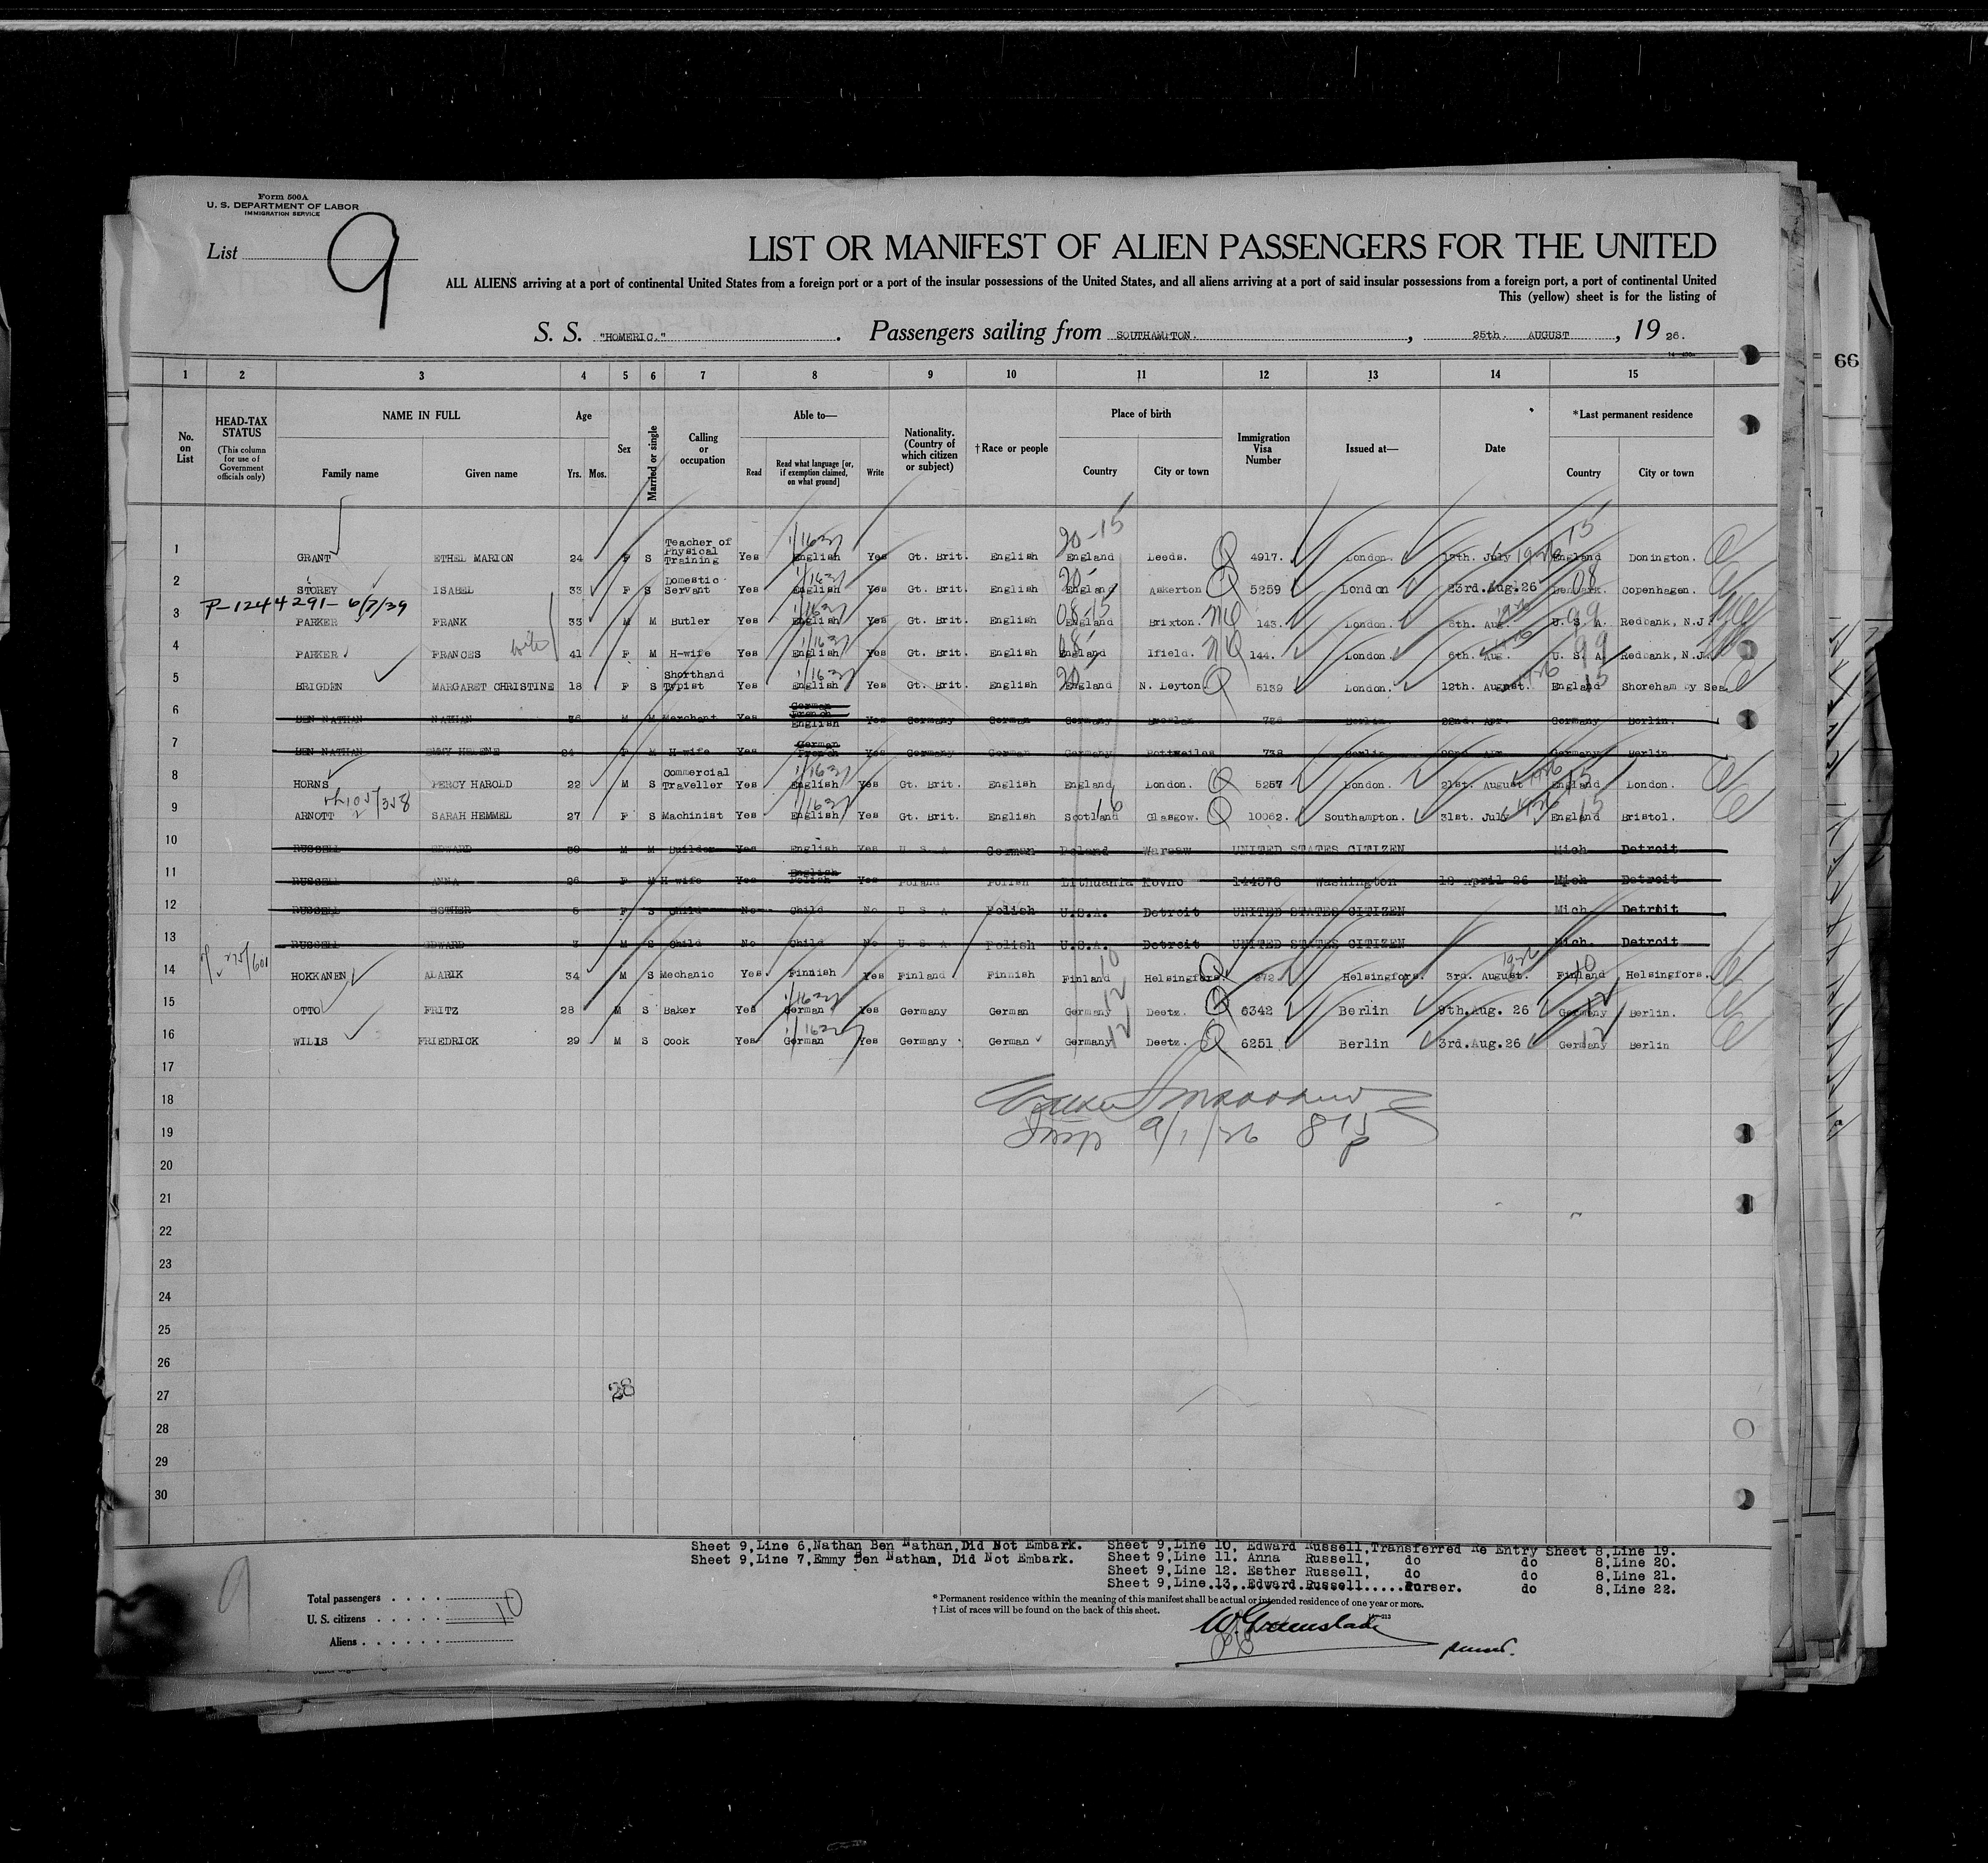 Form 500A
U. S. DEPARTMENT OF LABOR
IMMIGRATION SERVICE
List 9
LIST OR MANIFEST OF ALIEN PASSENGERS FOR THE UNITED
ALL ALIENS arriving at a port of continental United States from a foreign port or a port of the insular possessions of the United States, and all aliens arriving at a port of said insular possessions from a foreign port, a port of continental United
This (yellow) sheet is for the listing of
S. S. "HOMERIC." . Passengers sailing from SOUTHAMPTON. , 25th. AUGUST , 19 26.
66
1 2 3 4 5 6 7 8 9 10 11 12 13 14 15
No. on List
HEAD-TAX STATUS (This column for use of Government officials only)
NAME IN FULL
Family name Given name
Age
Yrs. Mos.
Sex
Married or single
Calling or occupation
Able to—
Read Read what language [or, if exemption claimed, on what ground] Write
Nationality. (Country of which citizen or subject)
† Race or people
Place of birth
Country City or town
Immigration Visa Number
Issued at—
Date
* Last permanent residence
Country City or town
1 GRANT ETHEL MARION 24 F S Teacher of Physical Training Yes English Yes Gt. Brit. English England Leeds. Q 4917. London. July 1926 England Donington.
2 STOREY ISABEL 33 F S Domestic Servant Yes English Yes Gt. Brit. English England Askerton Q 5259 London 23rd.Aug.26 Denmark. Copenhagen.
P-1244291- 6/7/39
3 PARKER FRANK 33 M M Butler Yes English Yes Gt. Brit. English England Brixton. NQ 143. London. 6th. Aug. 1926 U. S. A. Redbank, N.J.
4 PARKER FRANCES wife 41 F M H-wife Yes English Yes Gt. Brit. English England Ifield. NQ 144. London. 6th. Aug. 1926 U. S. A. Redbank, N.J.
5 BRIGDEN MARGARET CHRISTINE 18 F S Shorthand Typist Yes English Yes Gt. Brit. English England N. Leyton. Q 5139 London. 12th. August. 1926 England Shoreham by Sea.
6 BEN NATHAN NATHAN 36 M M Merchant Yes German French English Yes Germany German Germany Breslau Berlin. 22nd. Apr. Germany Berlin.
7 BEN NATHAN EMMY HELENE 24 F M H-wife Yes German French Yes Germany German Germany 738 Berlin 22nd Apr. Germany Berlin
8 HORNS PERCY HAROLD 22 M S Commercial Traveller Yes English Yes Gt. Brit. English England London. Q 5257 London. 21st. August 1926 England London.
9 ARNOTT SARAH HEMMEL 27 F S Machinist Yes English Yes Gt. Brit. English Scotland Glasgow. Q 10062. Southampton. 31st. July 1926 England Bristol.
10 RUSSELL EDWARD 39 M M Builder Yes English Yes U S A German Poland Warsaw UNITED STATES CITIZEN Mich Detroit
11 RUSSELL ANNA 26 F M H-wife Yes English Polish Yes Poland Polish Lithuania Kovno 144378 Washington 12 April 26 Mich Detroit
12 RUSSELL ESTHER 5 F S Child No Child No U S A Polish U.S.A. Detroit UNITED STATES CITIZEN Mich Detroit
13 RUSSELL EDWARD 3 M S Child No Child No U S A Polish U.S.A. Detroit UNITED STATES CITIZEN Mich. Detroit
14 HOKKANEN ALARIK 34 M S Mechanic Yes Finnish Yes Finland Finnish Finland Helsingfors Q Helsingfors. 3rd. August. 1926 Finland Helsingfors.
15 OTTO FRITZ 28 M S Baker Yes German Yes Germany German Germany Deetz. Q 6342 Berlin 9th.Aug. 26 Germany Berlin.
16 WILIS FRIEDRICK 29 M S Cook Yes German Yes Germany German Germany Deetz. Q 6251 Berlin 3rd.Aug.26 Germany Berlin
17
18
19 9/1/26 8 15 p
20
21
22
23
24
25
26
27 28
28
29
30
Sheet 9,Line 6,Nathan Ben Nathan,Did Not Embark.
Sheet 9,Line 7,Emmy Ben Nathan, Did Not Embark.
Sheet 9,Line 10, Edward Russell,Transferred Re Entry Sheet 8,Line 19.
Sheet 9,Line 11. Anna Russell, do do 8,Line 20.
Sheet 9,Line 12. Esther Russell, do do 8,Line 21.
Sheet 9,Line.13, Edward Russell do 8,Line 22.
Purser.
9
Total passengers
U. S. citizens 10
Aliens
* Permanent residence within the meaning of this manifest shall be actual or intended residence of one year or more.
† List of races will be found on the back of this sheet.